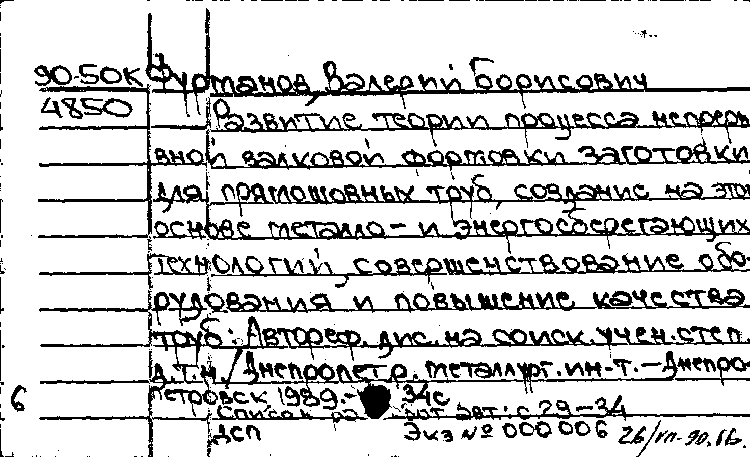 90-50К Фурманов, Валерий Борисович
4850 Развитие теории процесса непреры
вной валковой формовки заготовки
для прямошовных труб, создание на этой
основе металло- и энергосберегающих
технологий, совершенствование обо-
рудования и повышение качества
труб: Автореф. дис. на соиск. учен. степ.
д.т.н./Днепропетр. металлург. ин-т.-Днепро-
6 петровск 1989.- 34с
Список работ авт.: с 29-34
ДСП Экз № 000006 26/VII-90. ББ.